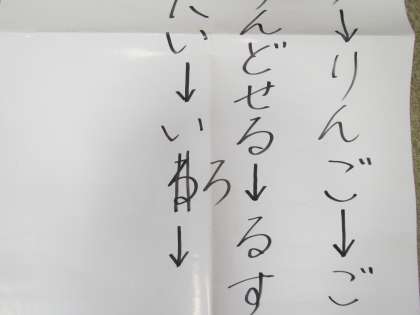 ↓りんご↓ご
んどせる↓るす
い↓いろ↓